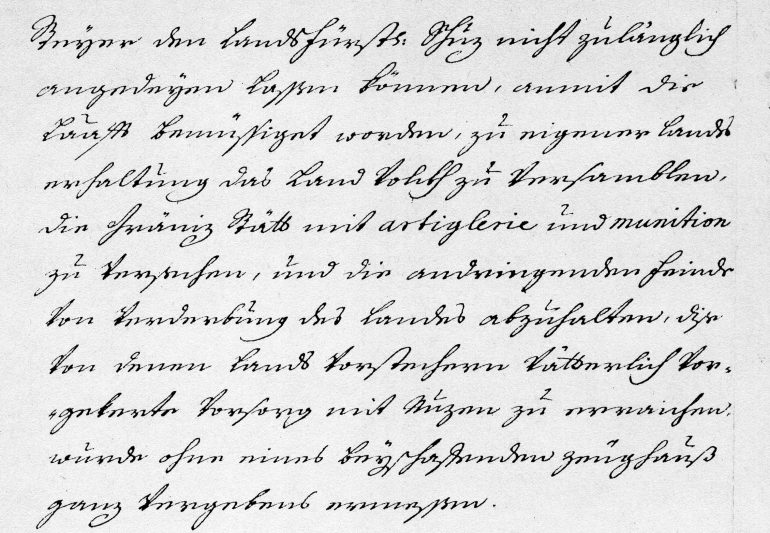 Steyer den Landsfürstl: Schuz nicht zulänglich
angedeyen lassen können, anmit die
bemüssiget worden, zu eigener Lands
erhaltung das Land Volckh zu Versamblen,
die Gräniz Stätt mit artiglerie und munition
zu Versechen, und die andringenden Feinde
Von Verderbung des Landes abzuhalten, dise
Von denen Lands Vorstechern Vätterlich Vor-
-gekerte Vorsorg mit Nuzen zu erraichen,
wurde ohne eines beyschaffenden Zeüghauß
ganz Vergebens ermessen.